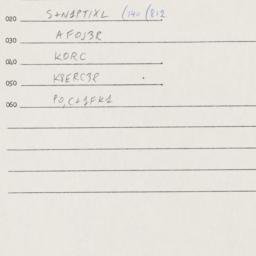 020 S+N1PTIXL (140 (812
030 AFOJ3R
040 KORC
050 K8ERC3R
060 PO,C+1FK1